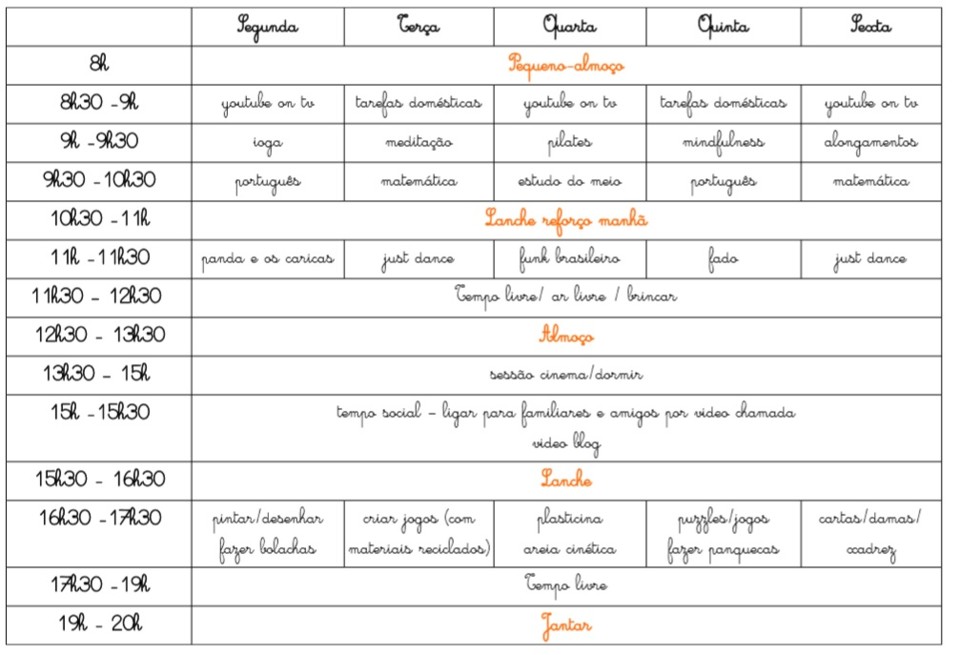 Segunda Terça Quarta Quinta Sexta
8h Pequeno-almoço
8h30 -9h youtube on tv tarefas domésticas youtube on tv tarefas domésticas youtube on tv
9h -9h30 ioga meditação pilates mindfulness alongamentos
9h30 -10h30 português matemática estudo do meio português matemática
10h30 -11h Lanche reforço manhã
11h -11h30 panda e os caricas just dance funk brasileiro fado just dance
11h30 - 12h30 Tempo livre/ ar livre / brincar
12h30 - 13h30 Almoço
13h30 - 15h sessão cinema/dormir
15h -15h30 tempo social - ligar para familiares e amigos por video chamada
video blog
15h30 - 16h30 Lanche
16h30 -17h30 pintar/desenhar criar jogos (com plasticina puzzles/jogos cartas/damas/
fazer bolachas materiais reciclados) areia cinética fazer panquecas xadrez
17h30 -19h Tempo livre
19h - 20h Jantar